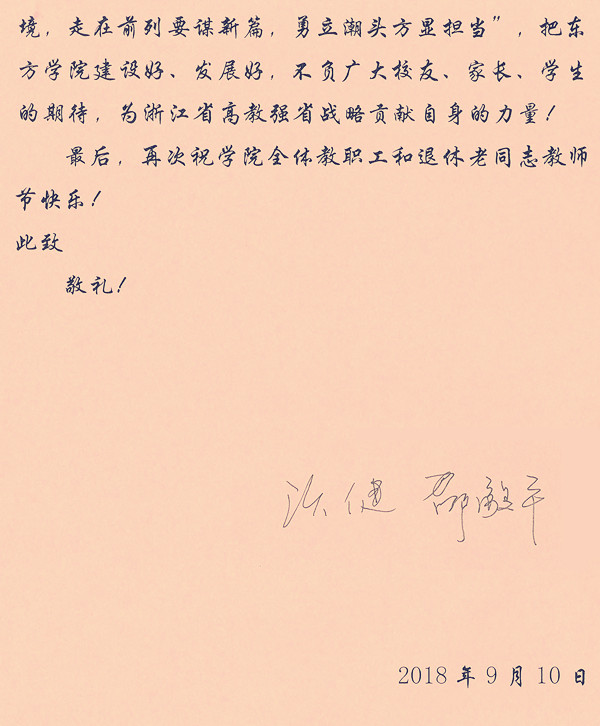 境，走在前列要谋新篇，勇立潮头方显担当”，把东
方学院建设好、发展好，不负广大校友、家长、学生
的期待，为浙江省高教强省战略贡献自身的力量！
最后，再次祝学院全体教职工和退休老同志教师
节快乐！
此致
敬礼！
健 邵 平
2018 年 9 月 10 日